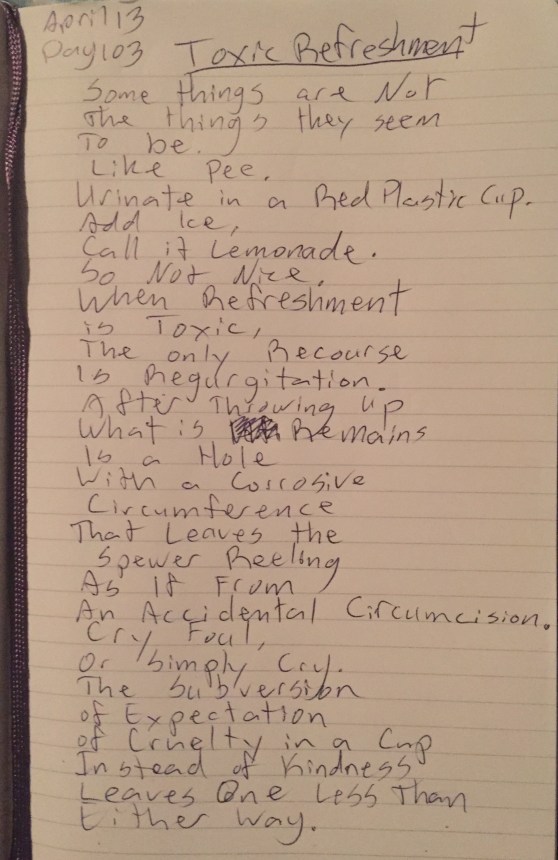 April 13
Day 103 Toxic Refreshment
Some things are Not
The things they seem
To be.
Like Pee.
Urinate in a Red Plastic Cup.
Add Ice,
Call it Lemonade.
So Not Nice.
When Refreshment
is Toxic,
The only Recourse
Is Regurgitation.
After Throwing up
What is Remains
Is a Hole
With a Corrosive
Circumference
That Leaves the
Spewer Reeling
As If From
An Accidental Circumcision.
Cry Foul,
Or Simply Cry.
The Subversion
of Expectation
of Cruelty in a Cup
Instead of Kindness
Leaves One Less Than
Either Way.